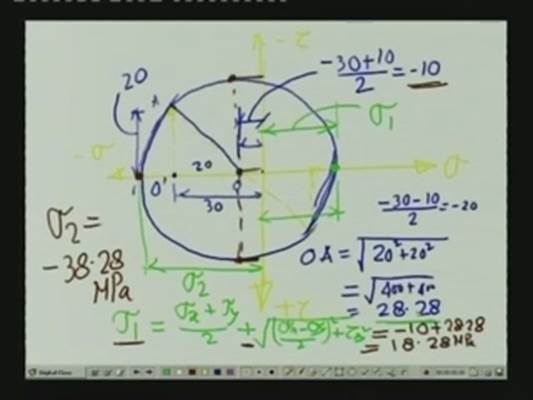 -τ
20
(-30+10)/2 = -10
σ₁
A
-σ
20
σ
O'
O
30
(-30-10)/2 = -20
σ₂ =
-38.28
MPa
σ₂
OA = √(20²+20²)
= √(400+400)
+τ
= 28.28
σ₁ = (σx+σy)/2 + √(((σx-σy)/2)²+τxy²)
= -10+28.28
= 18.28 MPa